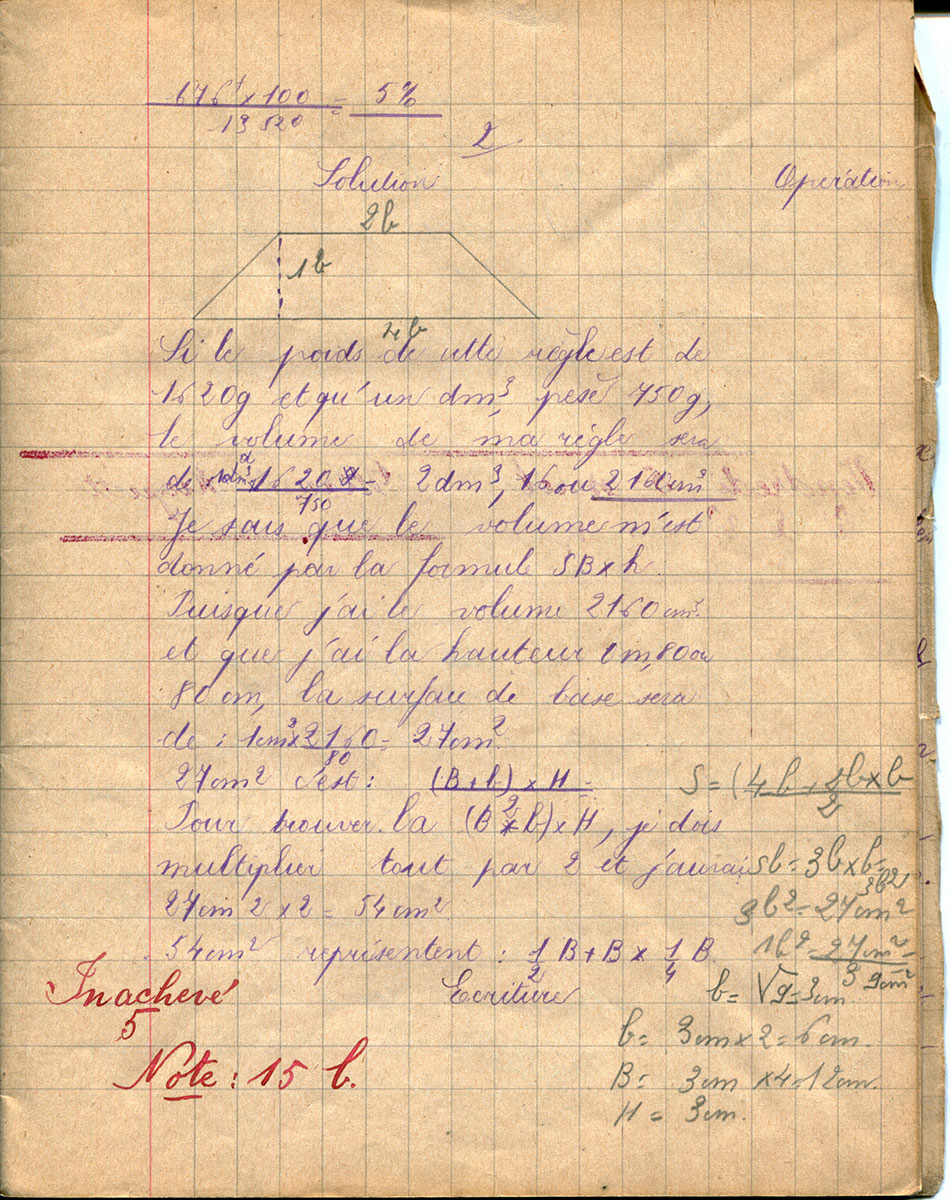 676 x 100 = 5%
13 520
2
Solution
Opération
2b
1b
4b
Si le poids de cette règle est de
1620g et qu'un dm³ pèse 750g,
le volume de ma règle sera
de 1dm³ x 1620 = 2dm³,16 ou 2160cm³
750
Je sais que le volume m'est
donné par la formul SB x h.
Puisque j'ai le volume 2160cm³
et que j'ai la hauteur 0m,80 ou
80cm, la surface de base sera
de : 1cm² x 2160 = 27cm²
80
27cm² c'est : (B + b) x H =
2
S = (4b + 2b x b
2
Pour trouver la (B + b) x H, je dois
multiplier tout par 2 et j'aurai
sb = 3b x b =
3b²
27cm2 x 2 = 54cm²
3b² = 27cm²
54cm² représentent : 1 B + B x 1 B.
2 4
1b² = 27cm² =
3 9cm²
Inachevé
5
Ecriture
b = √9 = 3cm
b = 3cm x 2 = 6cm.
Note : 15 b.
B = 3cm x 4 = 12cm.
H = 3cm.